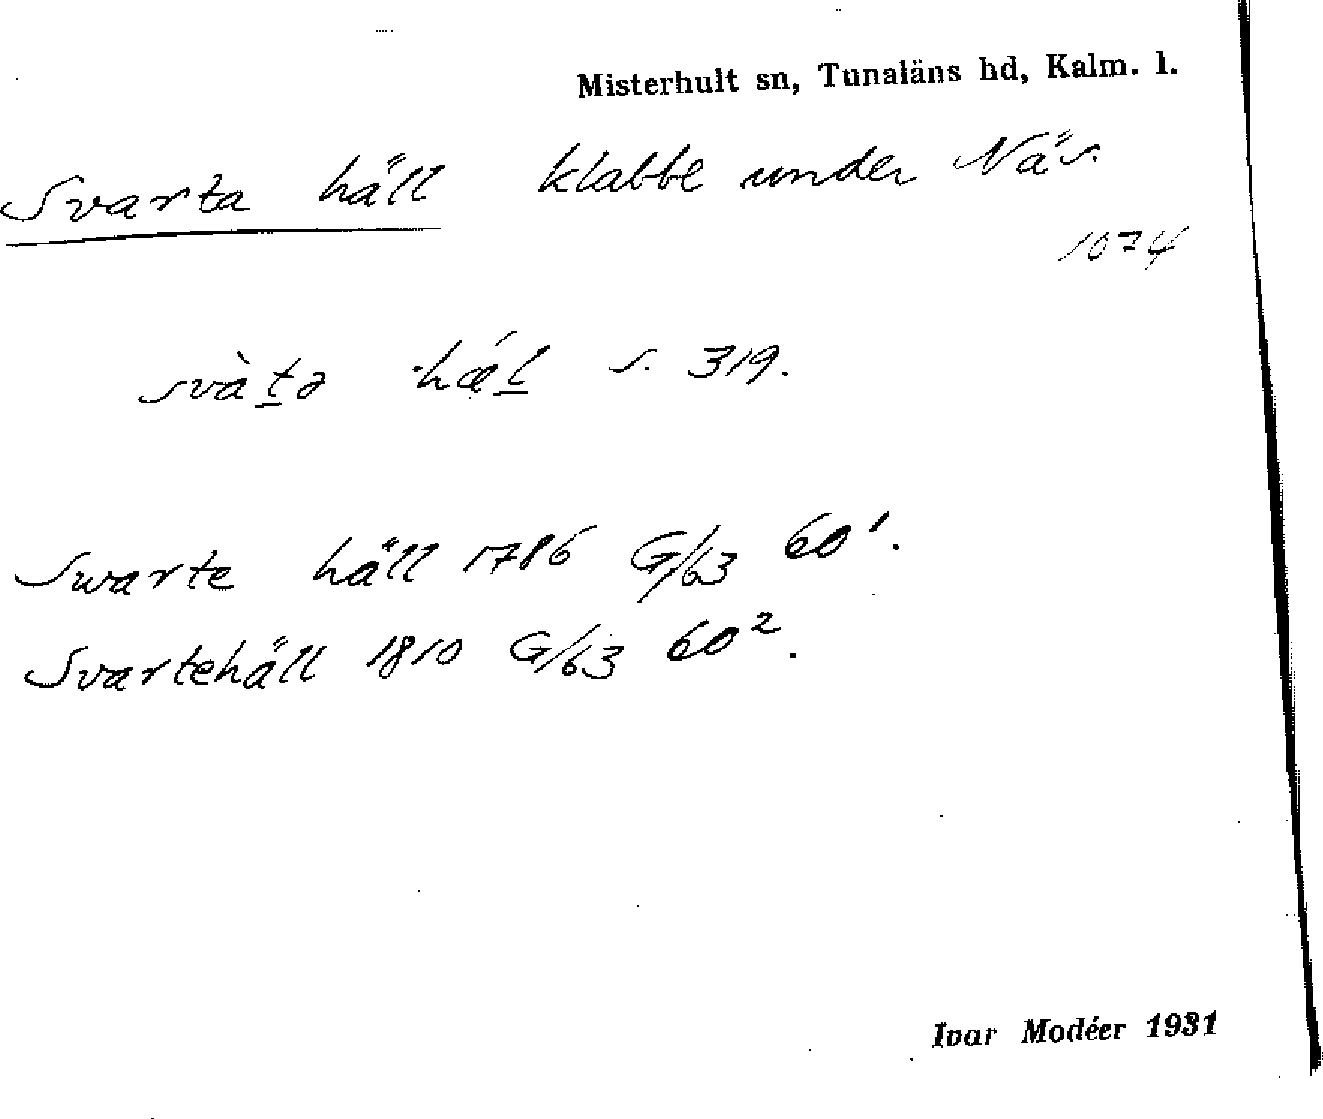 Misterhult sn, Tunaläns hd, Kalm. l.
Svarta häll klabbe under Näs.
1074
svàṯa hǽ̣ḻ s. 319.
Swarte häll 1786 G/63 60¹.
Svartehäll 1810 G/63 60².
Ivar Modéer 1931